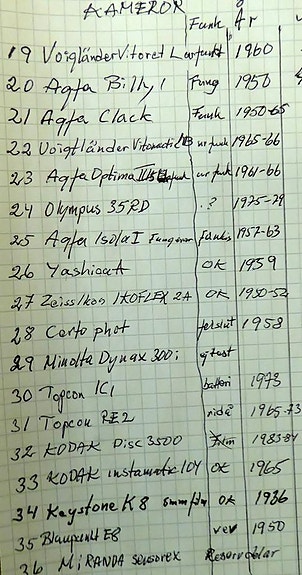 KAMEROR Funk År
19 VoigländerVitoret L ur funkt 1960
20 Agfa Billy 1 Fung 1950
21 Agfa Clack Funk 1950-65
22 Voigtländer Vitomatic IIB ur funk 1965-66
23 Agfa Optima III S ur funk 1961-66
24 Olympus 35RD .? 1975-79
25 Agfa Isola I Fungerar 1957-63
26 Yashica A OK 1959
27 Zeiss Ikon IKOFLEX 2A OK 1950-52
28 Certo phot 1958
29 Minolta Dynax 300i ej test
30 Topcon IC1 batteri 1973
31 Topcon RE2 ridå 1965-73
32 KODAK Disc 3500 1983-84
33 KODAK instamatic 104 OK 1965
34 Keystone K8 8mm film OK 1936
35 Blaupunkt E8 vev 1950
36 MiRANDA sensorex Reservdelar